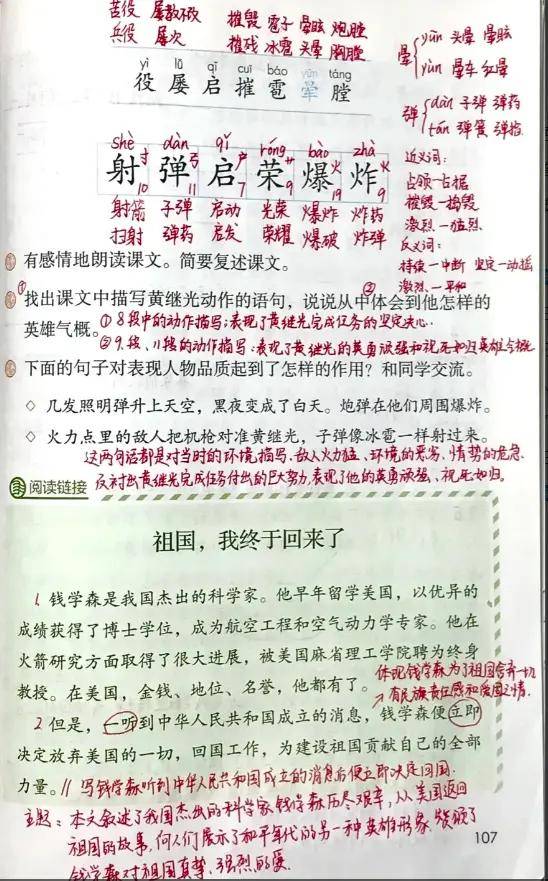 苦役 屡教不改 摧毁 雹子 晕眩 炮膛
兵役 屡次 摧残 冰雹 头晕 胸膛
yì lǚ qǐ cuī báo yūn táng
役 屡 启 摧 雹 晕 膛
晕 yūn 头晕 晕眩
yùn 晕车 红晕
弹 dàn 子弹 弹药
tán 弹簧 弹指
shè dàn qǐ róng bào zhà
射 弹 启 荣 爆 炸
寸 弓 户 艹 火 火
10 11 7 9 19 9
射箭 子弹 启动 光荣 爆炸 炸药
扫射 弹药 启发 荣耀 爆破 炸弹
近义词:
占领—占据
摧毁—捣毁
激烈—猛烈
反义词:
持续—中断 坚定—动摇
激烈—平和
有感情地朗读课文。简要复述课文。
找出课文中描写黄继光动作的语句,说说从中体会到他怎样的
英雄气概。
①8段中的动作描写:表现了黄继光完成任务的坚定决心.
②9.段、11段的动作描写:表现了黄继光的英勇顽强和视死如归英雄气概
下面的句子对表现人物品质起到了怎样的作用?和同学交流。
◇ 几发照明弹升上天空,黑夜变成了白天。炮弹在他们周围爆炸。
◇ 火力点里的敌人把机枪对准黄继光,子弹像冰雹一样射过来。
这两句话都是对当时的环境描写.敌人火力猛、环境的恶劣、情势的危急.
反衬出黄继光完成任务付出的巨大努力,表现了他的英勇顽强、视死如归.
阅读链接
祖国,我终于回来了
1. 钱学森是我国杰出的科学家。他早年留学美国,以优异的
成绩获得了博士学位,成为航空工程和空气动力学专家。他在
火箭研究方面取得了很大进展,被美国麻省理工学院聘为终身
教授。在美国,金钱、地位、名誉,他都有了。
体现钱学森为了祖国舍弃一切
有民族责任感和爱国之情.
2 但是,一听到中华人民共和国成立的消息,钱学森便立即
决定放弃美国的一切,回国工作,为建设祖国贡献自己的全部
力量。// 写钱学森听到中华人民共和国成立的消息后便立即决定回国.
主题:本文叙述了我国杰出的科学家钱学森历尽艰辛,从美国返回
祖国的故事,向人们展示了和平年代的另一种英雄形象.赞颂了
钱学森对祖国真挚、强烈的爱.
107